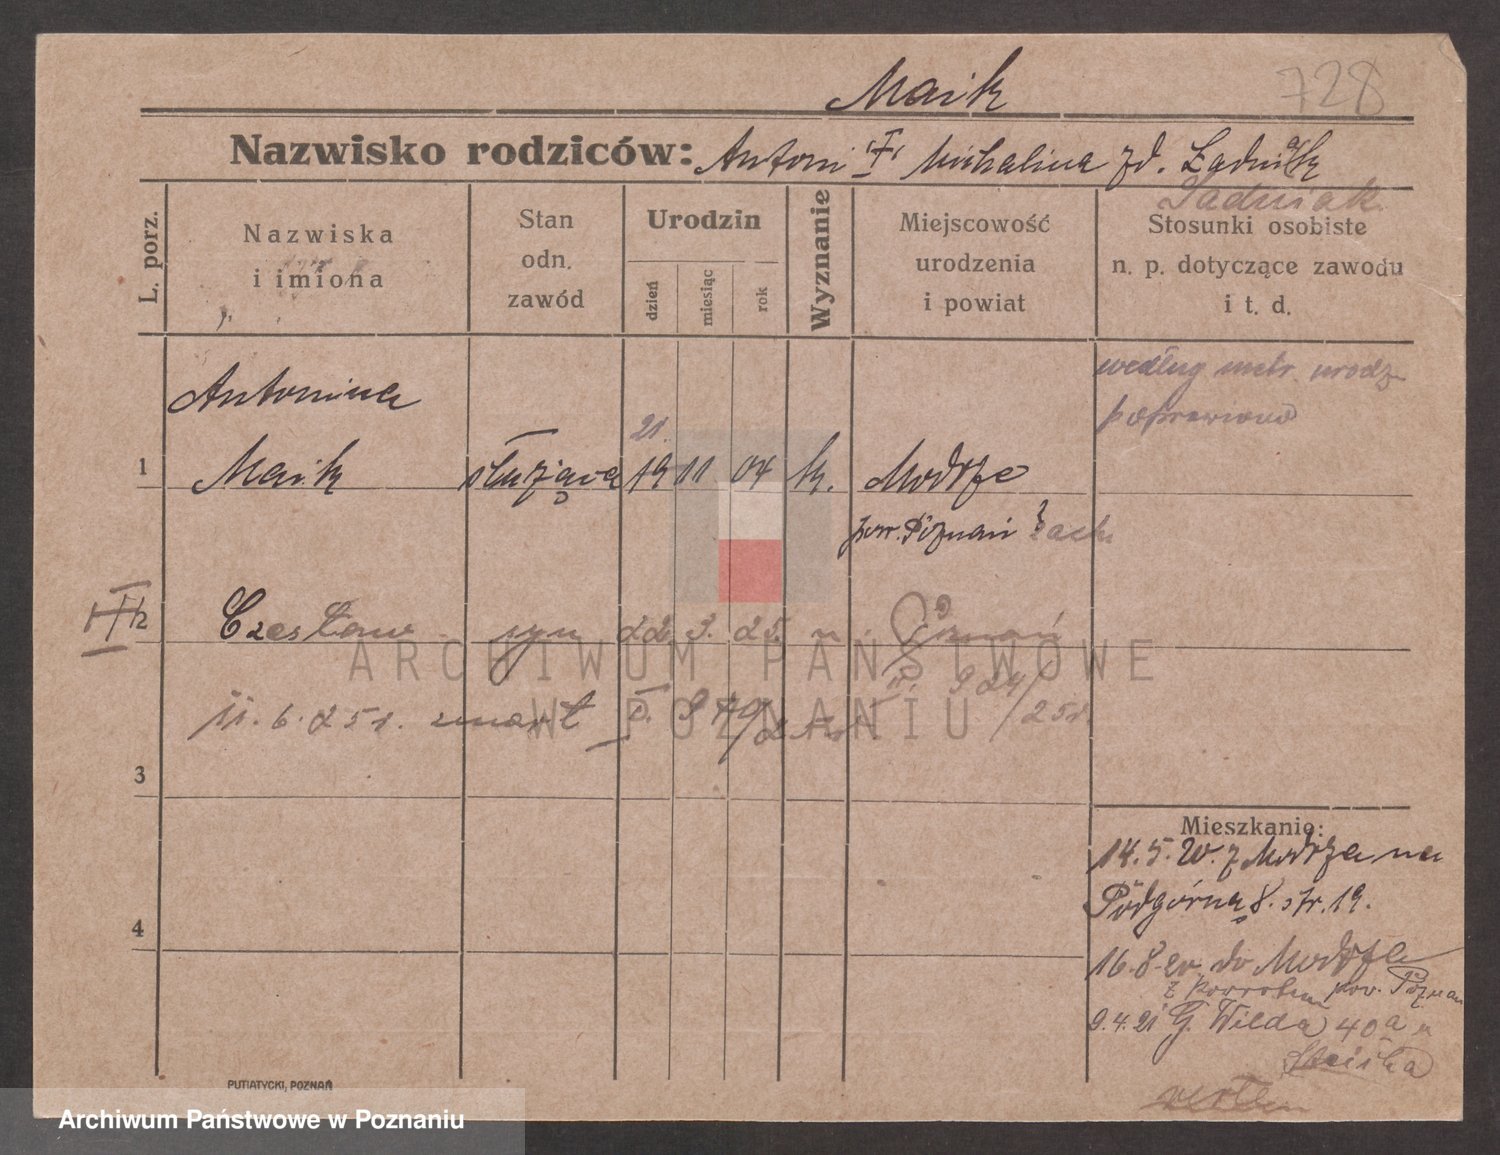 Maik
728
Nazwisko rodziców: Antoni i Michalina zd. Ładniak
Ładniak
L. porz.
Nazwiska
i imiona
Stan
odn.
zawód
Urodzin
dzień
miesiąc
rok
Wyznanie
Miejscowość
urodzenia
i powiat
Stosunki osobiste
n. p. dotyczące zawodu
i t. d.
według metr. urodz
poprawiono
Antonina
21.
1 Maik służąca 19 11 04 k. Modrze
pow. Poznań zach.
2 Czesław syn 22 3. 25. Poznań
924/251
6. 251. zmarł
3
4
Mieszkanie:
14.5.20. z Modrza na
Podgórna 8. 19.
16.8.20 do Modrze
z powrotem pow. Poznań
9.4.21 G. Wilda 40a
ARCHIWUM PAŃSTWOWE
W POZNANIU
PUTIATYCKI, POZNAŃ
Archiwum Państwowe w Poznaniu